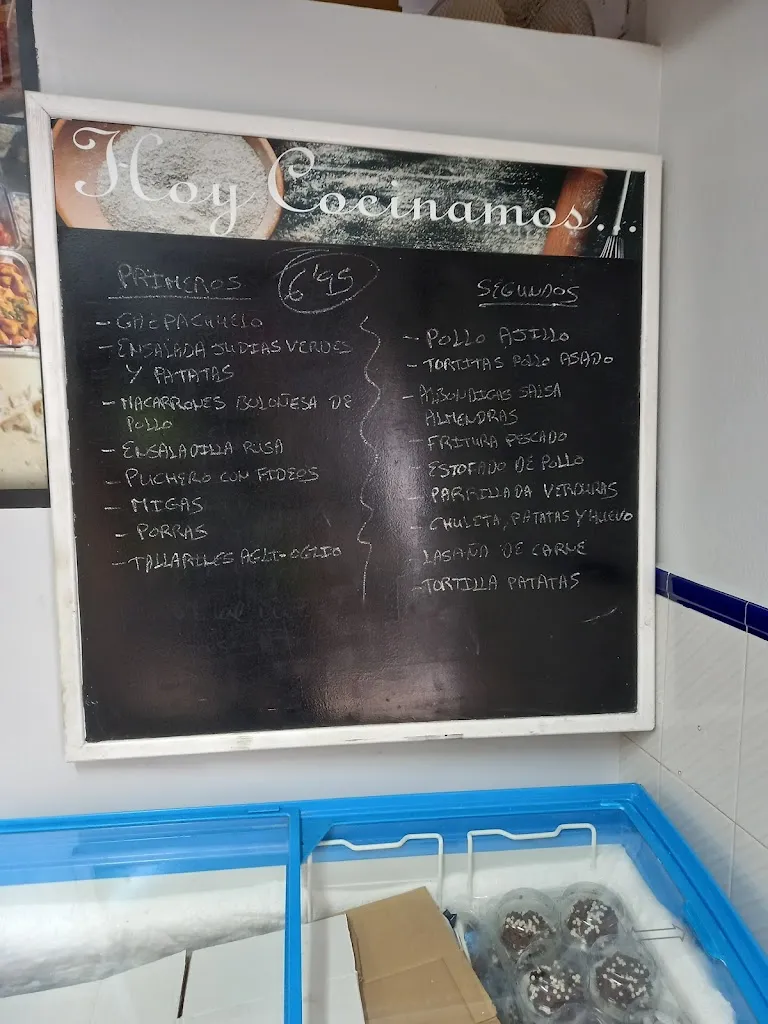 Hoy Cocinamos...
PRIMEROS
6'95
- GAZPACHUELO
- ENSALADA JUDIAS VERDES
Y PATATAS
- MACARRONES BOLOÑESA DE
POLLO
- ENSALADILLA RUSA
- PUCHERO CON FIDEOS
- MIGAS
- PORRAS
- TALLARINES AGLI-OGLIO
SEGUNDOS
- POLLO AJILLO
- TORTITAS POLLO ASADO
- ALBONDIGAS SALSA
ALMENDRAS
- FRITURA PESCADO
- ESTOFADO DE POLLO
- PARRILLADA VERDURAS
- CHULETA, PATATAS Y HUEVO
- LASAÑA DE CARNE
- TORTILLA PATATAS